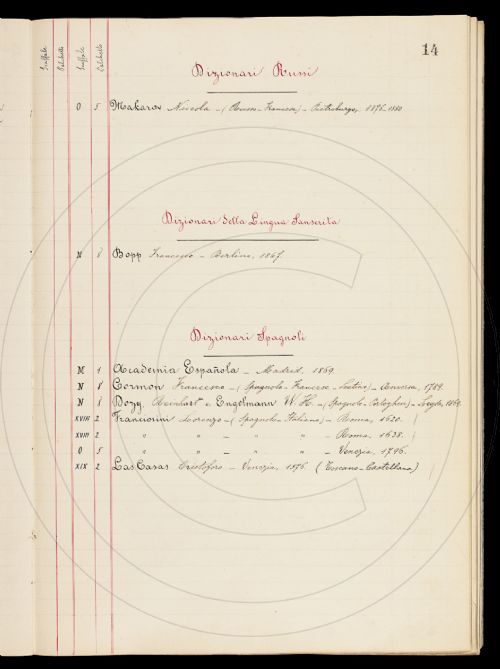 Scaffale Palchetto Scaffale Palchetto
14
Dizionari Russi
O 5 Makarow Niccola - (Russo-Francese) - Pietroburgo, 1876-1880.
Dizionari della Lingua Sanscrita
N 8 Bopp Francesco - Berlino, 1867.
Dizionari Spagnoli
M 1 Academia Española - Madrid, 1869.
N 8 Cormon Francesco - (Spagnolo-Francese-Latino) - Anversa, 1769.
N 8 Dozy Reinhart e Engelmann W. H. - (Spagnolo-Portoghese) - Leyde, 1869.
XVIII 2 Franciosini Lorenzo - (Spagnolo-Italiano) - Roma, 1620.
XVIII 2 " " - " " - Roma, 1638.
O 5 " " - " " - Venezia, 1796.
XIX 2 Las Casas Cristoforo - Venezia, 1576. (Toscano-Castellana)